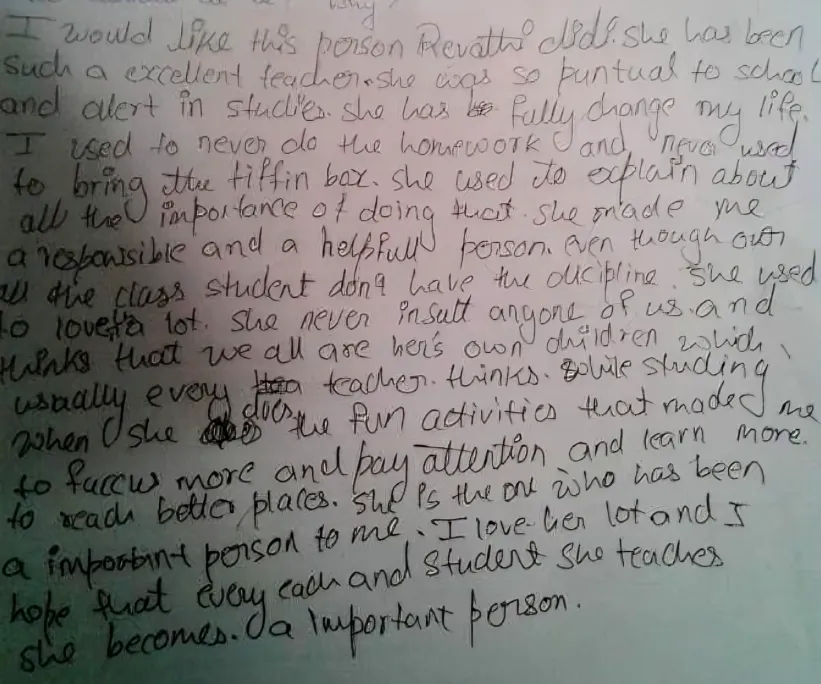 why
I would like this person Revathi didi. she has been
such a excellent teacher. she was so puntual to school
and alert in studies. she has fully change my life.
I used to never do the homework and never used
to bring the tiffin box. she used to explain about
all the importance of doing that. she made me
a responsible and a helpfull person. even though our
all the class student don't have the dicipline. she used
to love a lot. she never insult anyone of us. and
thinks that we all are her's own children which
usually every teacher. thinks. while studing
when she does the fun activities that maded me
to fuccus more and pay attention and learn more.
to reach better places. she is the one who has been
a important person to me. I love her lot and I
hope that every each and student she teaches
she becomes. a important person.